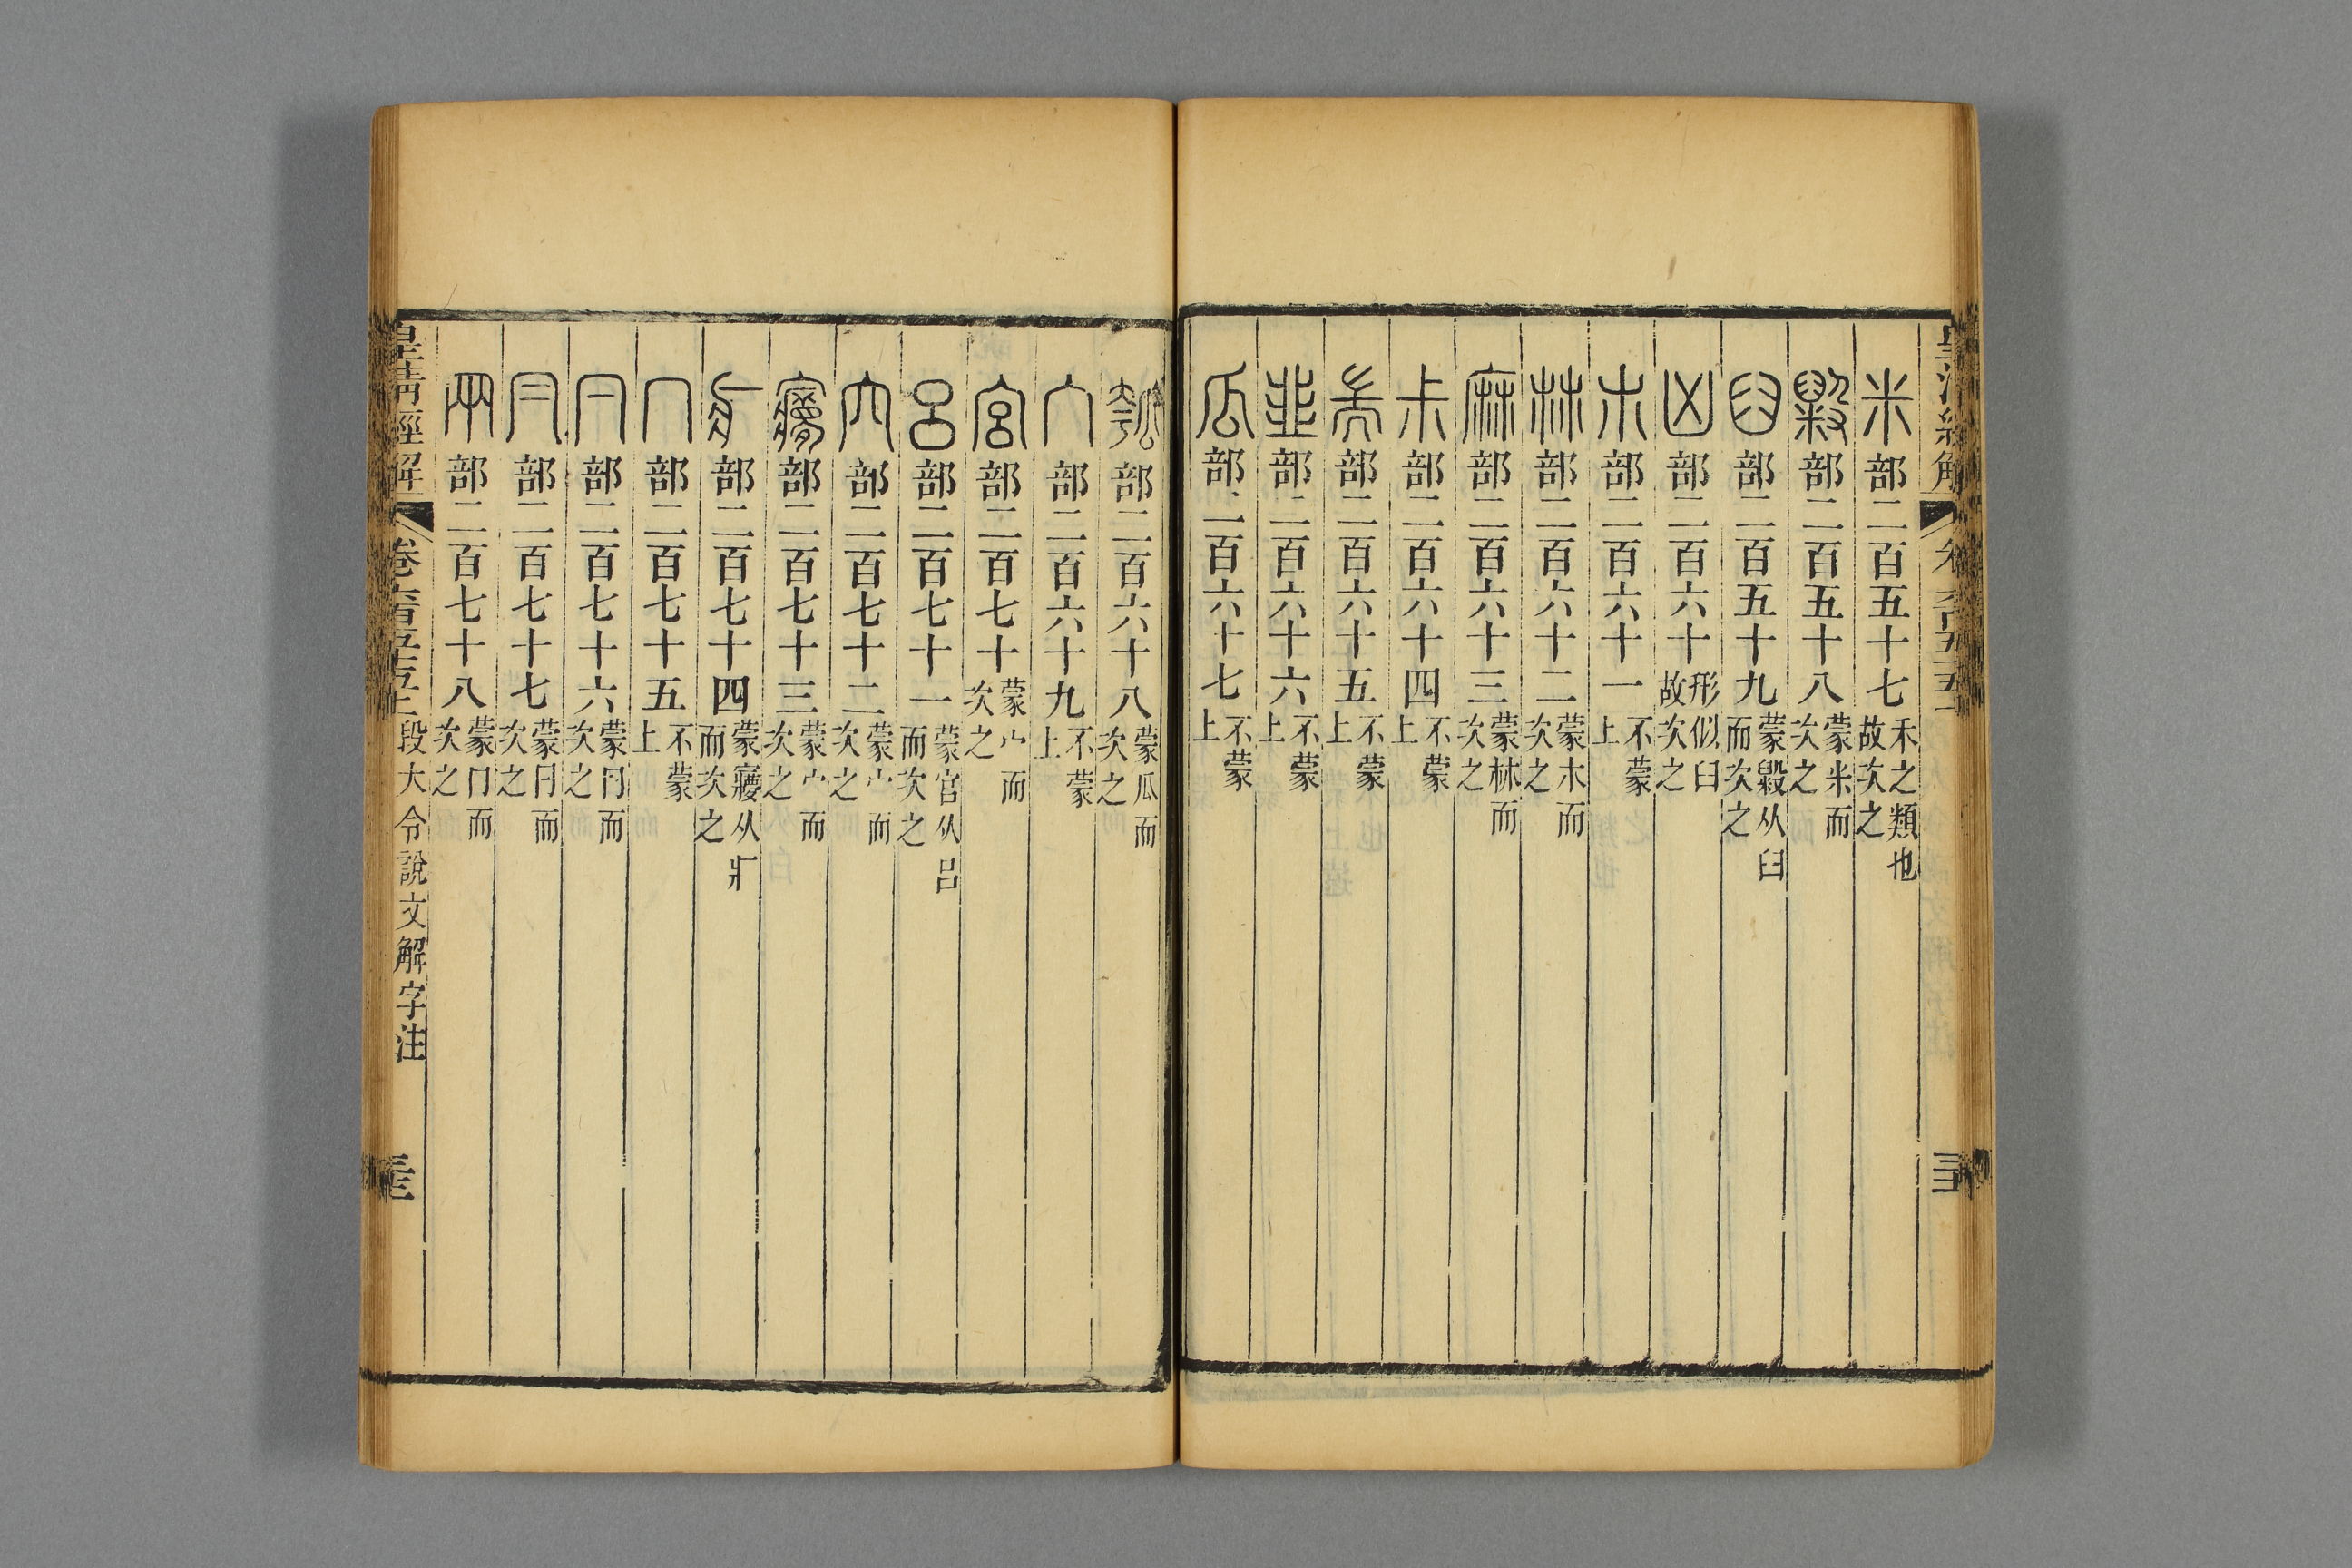 米部二百五十七禾之類也故次之
毇部二百五十八蒙米而次之
臼部二百五十九蒙毇从臼而次之
凶部二百六十形似臼故次之
朩部二百六十一不蒙上
𣏟部二百六十二蒙朩而次之
麻部二百六十三蒙𣏟而次之
尗部二百六十四不蒙上
耑部二百六十五不蒙上
韭部二百六十六不蒙上
瓜部二百六十七不蒙上
瓠部二百六十八蒙瓜而次之
宀部二百六十九不蒙上
宮部二百七十蒙宀而次之
呂部二百七十一蒙宮从呂而次之
穴部二百七十二蒙宀而次之
㝱部二百七十三蒙宀而次之
疒部二百七十四蒙寢从爿而次之
冖部二百七十五不蒙上
𠔼部二百七十六蒙冂而次之
冃部二百七十七蒙𠔼而次之
㒳部二百七十八蒙冂而次之
皇清經解 卷六百五十五上 段大令說文解字注